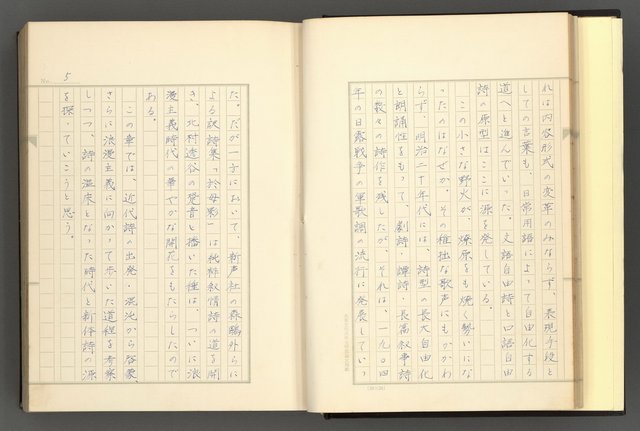 れは内容形式の変革のみならず、表現手段と
しての言葉も、日常用語によって自由化する
道へと進んでいった。文語自由詩と口語自由
詩の原型はここに源を発している。
この小さな野火が、燎原をも焼く勢いにな
ったのはなぜか。その稚拙な歌声にもかかわ
らず、明治二十年代には、詩型の長大自由化
と朗誦性をもって、劇詩・譚詩・長篇叙事詩
の数々の詩作を残したが、それは、一九〇四
年の日露戦争の軍歌調の流行に発展していっ
No. 5
た。だが一方において、新声社の森鷗外らに
よる訳詩集「於母影」は純粋叙情詩の道を開
き、北村透谷の発音と播いた種は、ついに浪
漫主義時代の華やかな開花をもたらしたので
ある。
この章では、近代詩の出発・混沌から啓蒙、
さらに浪漫主義に向かって歩いた道程を考察
しつつ、詩の温床となった時代と新体詩の源
を探っていこうと思う。